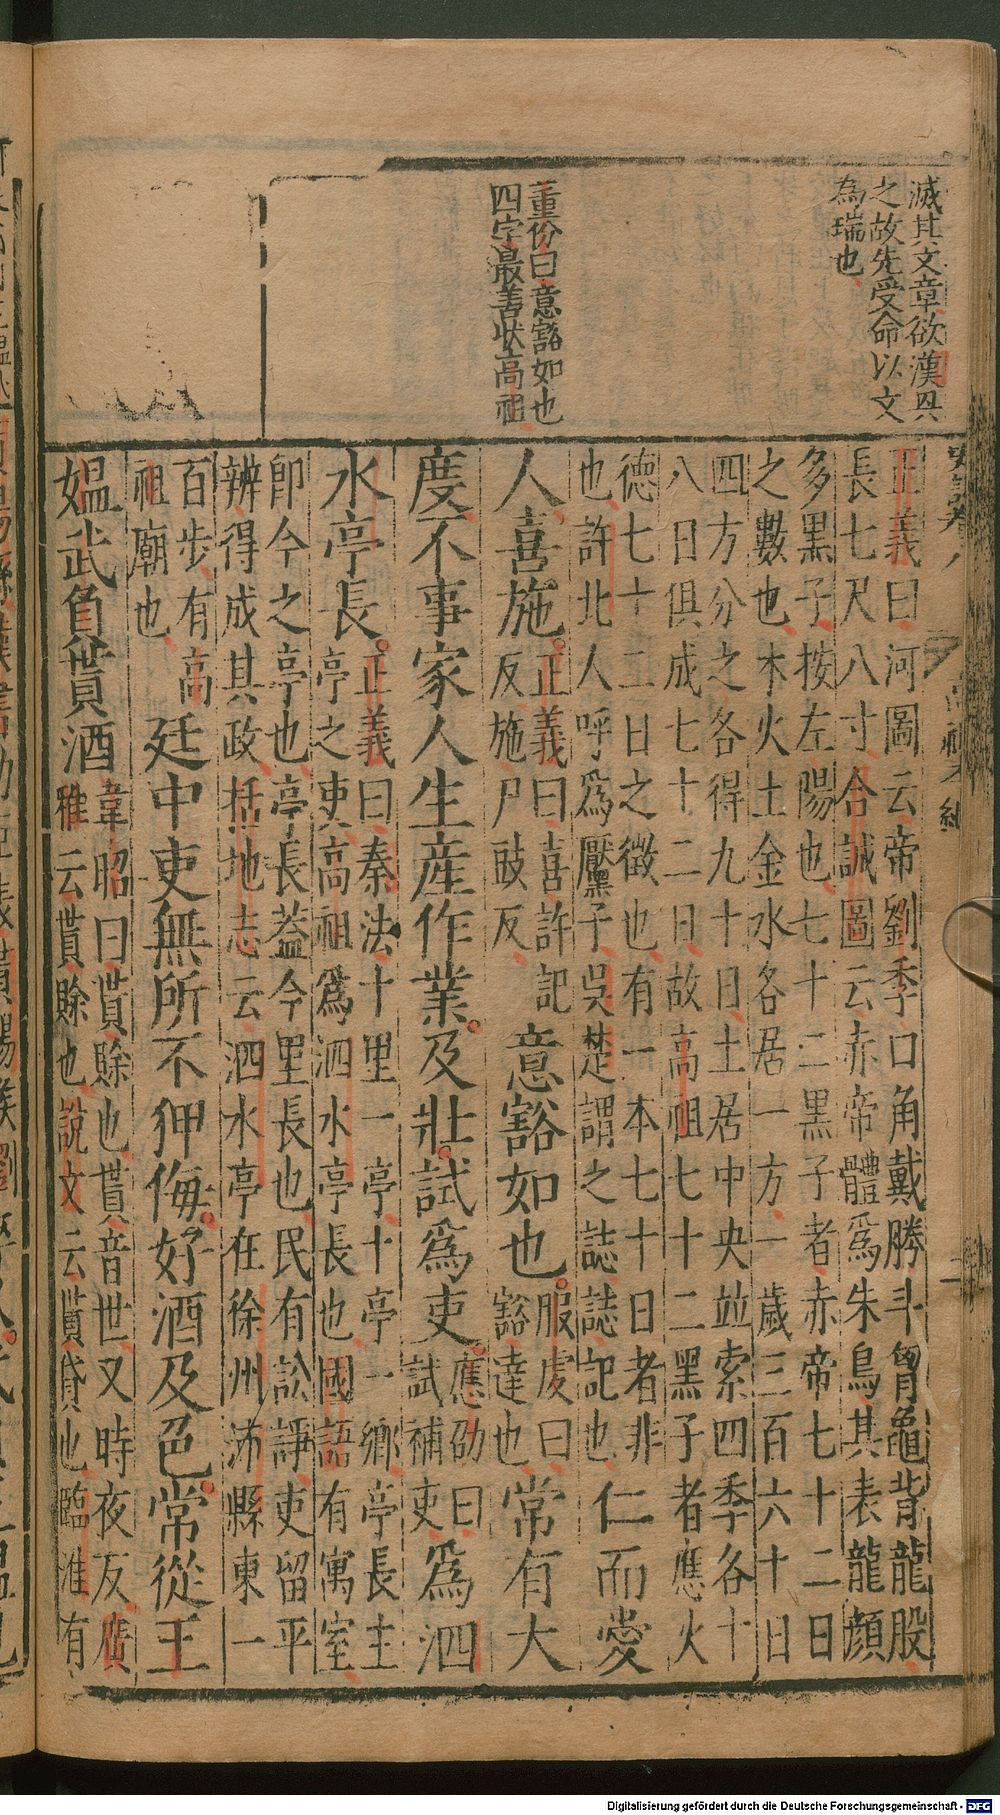 滅其文章欲漢興
之故先受命以文
為瑞也
董份曰意豁如也
四字最善狀高祖
正義曰河圖云帝劉季口角戴勝斗胷龜背龍股
長七尺八寸合誠圖云赤帝體爲朱鳥其表龍顏
多黑子按左陽也七十二黑子者赤帝七十二日
之數也木火土金水各居一方一歲三百六十日
四方分之各得九十日土居中央並索四季各十
八日俱成七十二日故高祖七十二黑子者應火
德七十二日之徵也有一本七十日者非
也許北人呼爲黶子吳楚謂之誌誌記也
仁而愛
人喜施
正義曰喜許記
反施尸豉反
意豁如也
服虔曰
豁達也
常有大
度不事家人生產作業及壯試爲吏
應劭曰
試補吏
爲泗
水亭長
正義曰秦法十里一亭十亭一鄉亭長主
亭之吏高祖爲泗水亭長也國語有寓室
卽今之亭也亭長蓋今里長也民有訟諍吏留平
辨得成其政括地志云泗水亭在徐州沛縣東一
百步有高
祖廟也
廷中吏無所不狎侮好酒及色常從王
媼武負貰酒
韋昭曰貰賖也貰音世又時夜反廣
雅云貰賖也說文云貰貸也臨淮有
Digitalisierung gefördert durch die Deutsche Forschungsgemeinschaft - DFG